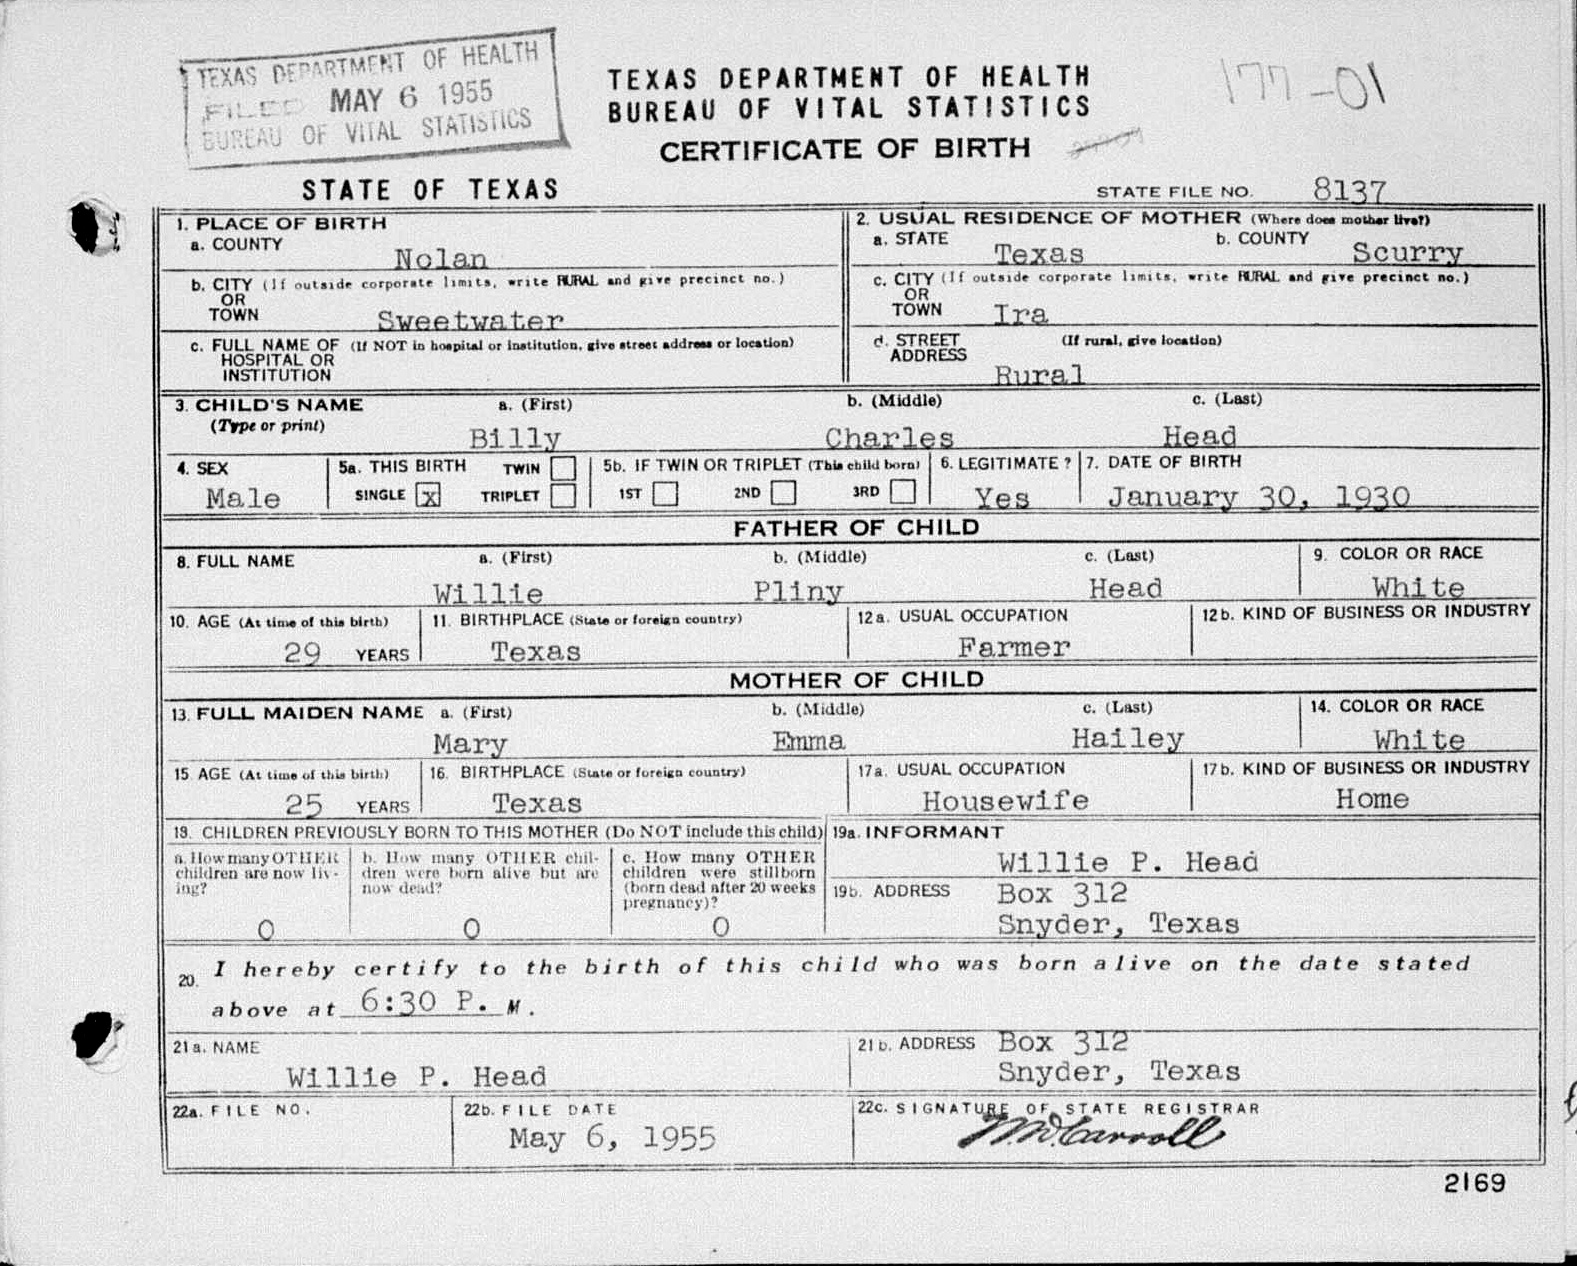 TEXAS DEPARTMENT OF HEALTH
FILED MAY 6 1955
BUREAU OF VITAL STATISTICS
TEXAS DEPARTMENT OF HEALTH
BUREAU OF VITAL STATISTICS
CERTIFICATE OF BIRTH
177-01
STATE OF TEXAS
STATE FILE NO. 8137
1. PLACE OF BIRTH
a. COUNTY
Nolan
2. USUAL RESIDENCE OF MOTHER (Where does mother live?)
a. STATE Texas b. COUNTY Scurry
b. CITY (If outside corporate limits, write RURAL and give precinct no.)
OR
TOWN Sweetwater
c. CITY (If outside corporate limits, write RURAL and give precinct no.)
OR
TOWN Ira
c. FULL NAME OF (If NOT in hospital or institution, give street address or location)
HOSPITAL OR
INSTITUTION
d. STREET (If rural, give location)
ADDRESS
Rural
3. CHILD'S NAME a. (First) b. (Middle) c. (Last)
(Type or print)
Billy Charles Head
4. SEX
Male
5a. THIS BIRTH TWIN
SINGLE X TRIPLET
5b. IF TWIN OR TRIPLET (This child born)
1ST 2ND 3RD
6. LEGITIMATE?
Yes
7. DATE OF BIRTH
January 30, 1930
FATHER OF CHILD
8. FULL NAME a. (First) b. (Middle) c. (Last)
Willie Pliny Head
9. COLOR OR RACE
White
10. AGE (At time of this birth)
29 YEARS
11. BIRTHPLACE (State or foreign country)
Texas
12a. USUAL OCCUPATION
Farmer
12b. KIND OF BUSINESS OR INDUSTRY
MOTHER OF CHILD
13. FULL MAIDEN NAME a. (First) b. (Middle) c. (Last)
Mary Emma Hailey
14. COLOR OR RACE
White
15. AGE (At time of this birth)
25 YEARS
16. BIRTHPLACE (State or foreign country)
Texas
17a. USUAL OCCUPATION
Housewife
17b. KIND OF BUSINESS OR INDUSTRY
Home
18. CHILDREN PREVIOUSLY BORN TO THIS MOTHER (Do NOT include this child)
a. How many OTHER
children are now liv-
ing?
0
b. How many OTHER chil-
dren were born alive but are
now dead?
0
c. How many OTHER
children were stillborn
(born dead after 20 weeks
pregnancy)?
0
19a. INFORMANT
Willie P. Head
19b. ADDRESS Box 312
Snyder, Texas
20. I hereby certify to the birth of this child who was born alive on the date stated
above at 6:30 P. M.
21a. NAME
Willie P. Head
21b. ADDRESS Box 312
Snyder, Texas
22a. FILE NO.
22b. FILE DATE
May 6, 1955
22c. SIGNATURE OF STATE REGISTRAR
W.D. Carroll
2169